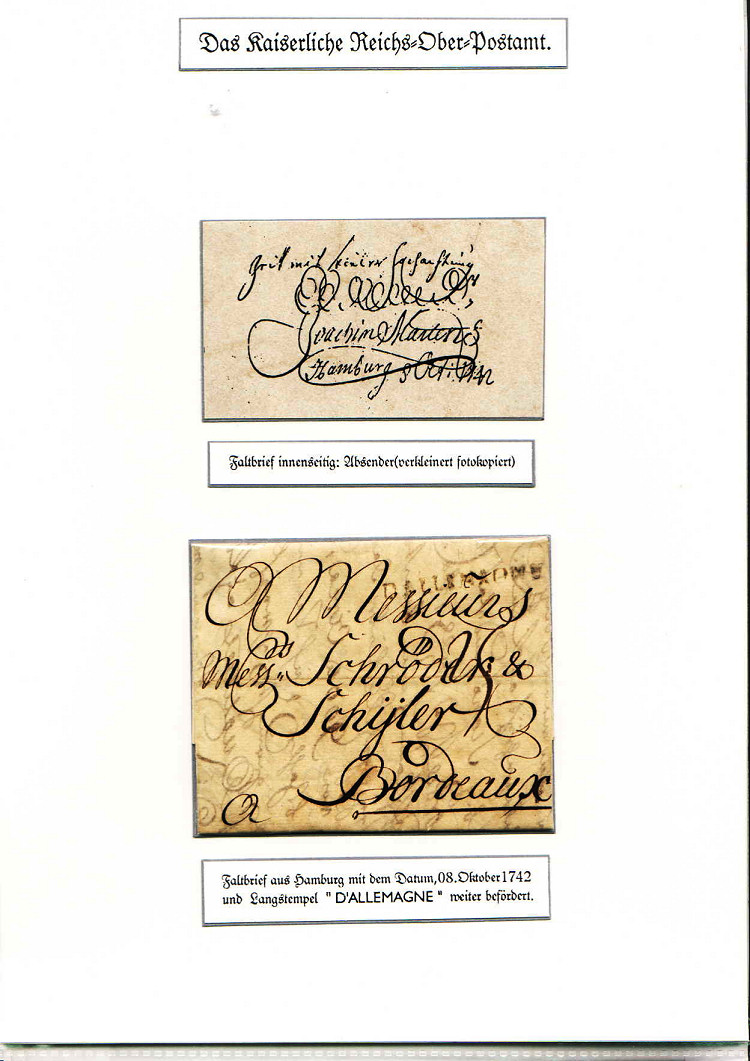 Das Kaiserliche Reichs-Ober-Postamt.
mit
Joachim Martens
Hamburg 8 Oct: 1742
Faltbrief innenseitig: Absender(verkleinert fotokopiert)
D'ALLEMAGNE
A Messieurs
Mess.rs Schröder &
Schÿler
Bordeaux
a
Faltbrief aus Hamburg mit dem Datum,08.Oktober1742
und Langstempel " D'ALLEMAGNE " weiter befördert.